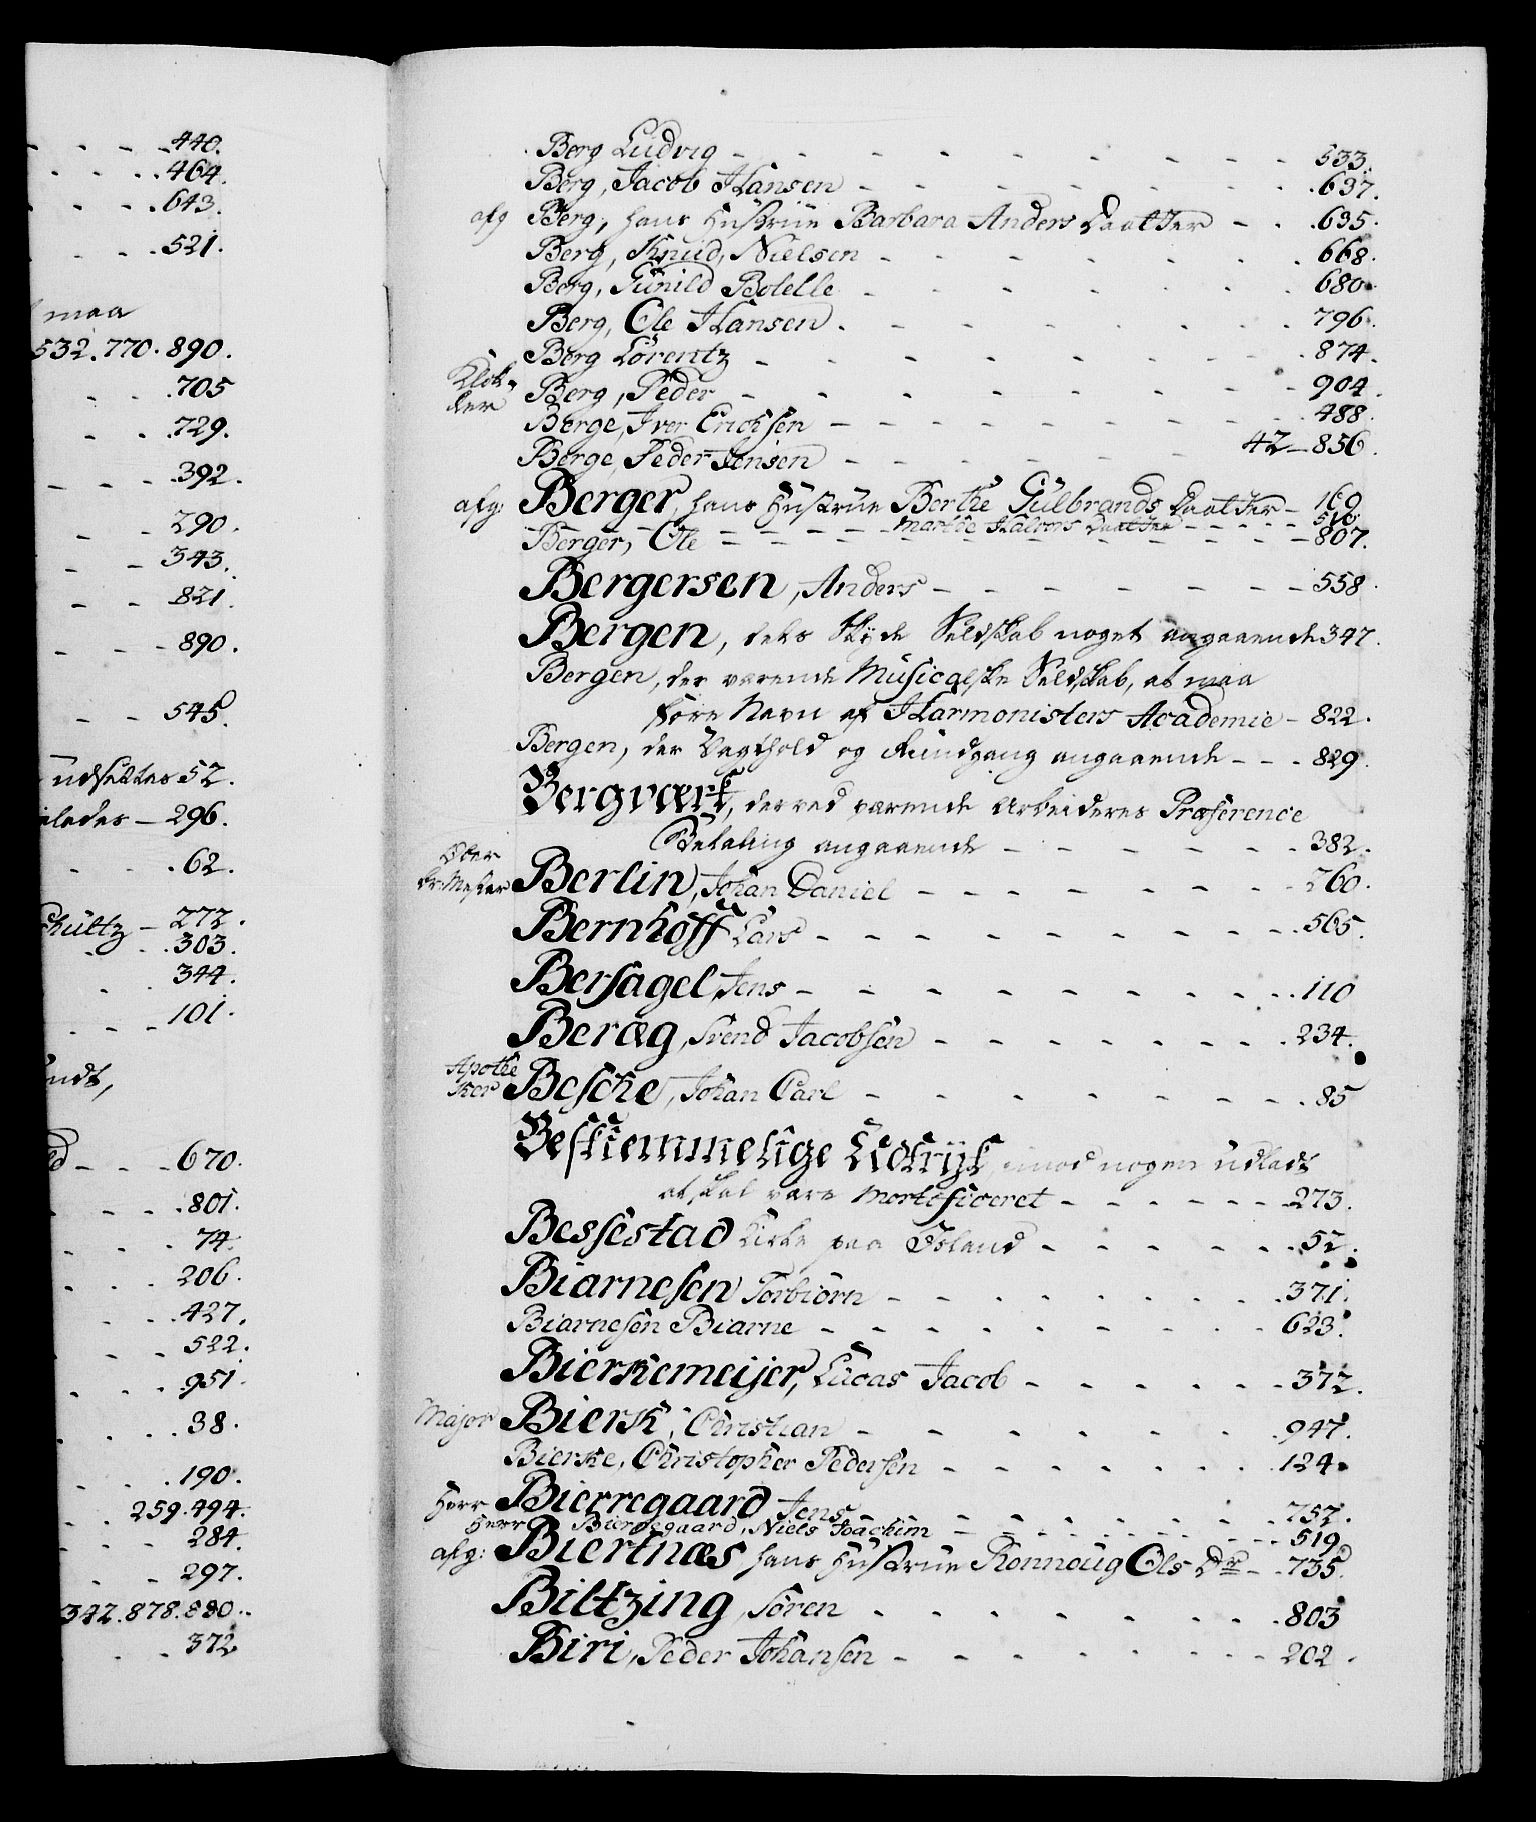 440.
464.
643.
521.
maa
532. 770. 890.
705
729.
392.
290.
343.
821.
890.
545.
udsættes 52.
296.
62.
272.
303.
344.
101.
670.
801.
74.
206.
427.
522.
951.
38.
190.
259. 494.
284.
297.
342. 878. 880.
372
Berg Ludvig - - - 533.
Berg, Jacob Hansen - - - 637.
afg Berg, hans Hustrue Barbara Anders Daatter - - 635.
Berg, Knud Nielsen - - - 668.
Berg, Gunild Bolelle - - - 680.
Berg, Ole Hansen - - - 796.
Berg Lorentz - - - 874.
Klok-
ker Berg, Peder - - - 904.
Berge, Iver Erichsen - - - 488.
Berge, Peder Jensen - - - 42 - 856.
afg: Berger, hans Hustrue Berthe Gulbrands Daatter - 160
Marthe Halvors Daatter - - - 516.
Berger, Ole - - - 807.
Bergersen, Anders - - - 558.
Bergen, dets Skyde Selskab noget angaaende 347.
Bergen, der værende Musicalske Selskab, at maa
føre Navn af Harmonisters Academie - 822.
Bergen, der Vagthold og Rundgang angaaende - - - 829.
Bergværk, derved værende Arbeideres Præference
Betaling angaaende - - - 382.
Ober
Br: Mester Berlin, Johan Daniel - - - 260.
Bernhoff Lars - - - 565.
Bersagel, Jens - - - 110
Beræg, Svend Jacobsen - - - 234.
Apothe
ker Besche, Johan Carl - - - 85
Beskiemmelige Udtryk, imod nogen udladt
at skal være Mortificeret - - - 273.
Bessestad Kirke paa Island - - - 52.
Biarnesen Torbiörn - - - 371.
Biarnesen Biarne - - - 623.
Bierkemeijer, Lucas Jacob - - - 372.
Major Bierk, Christian - - - 947.
Bierke, Christopher Pedersen - - - 124.
Herr Bierregaard Jens - - - 757.
Herr Bierregaard, Niels Joachim - - - 519.
afg: Biertnæs hans Hustrue Ronnoug Ols Dr - - 735.
Biltzing, Sören - - - 803
Biri, Peder Johansen - - - 202.